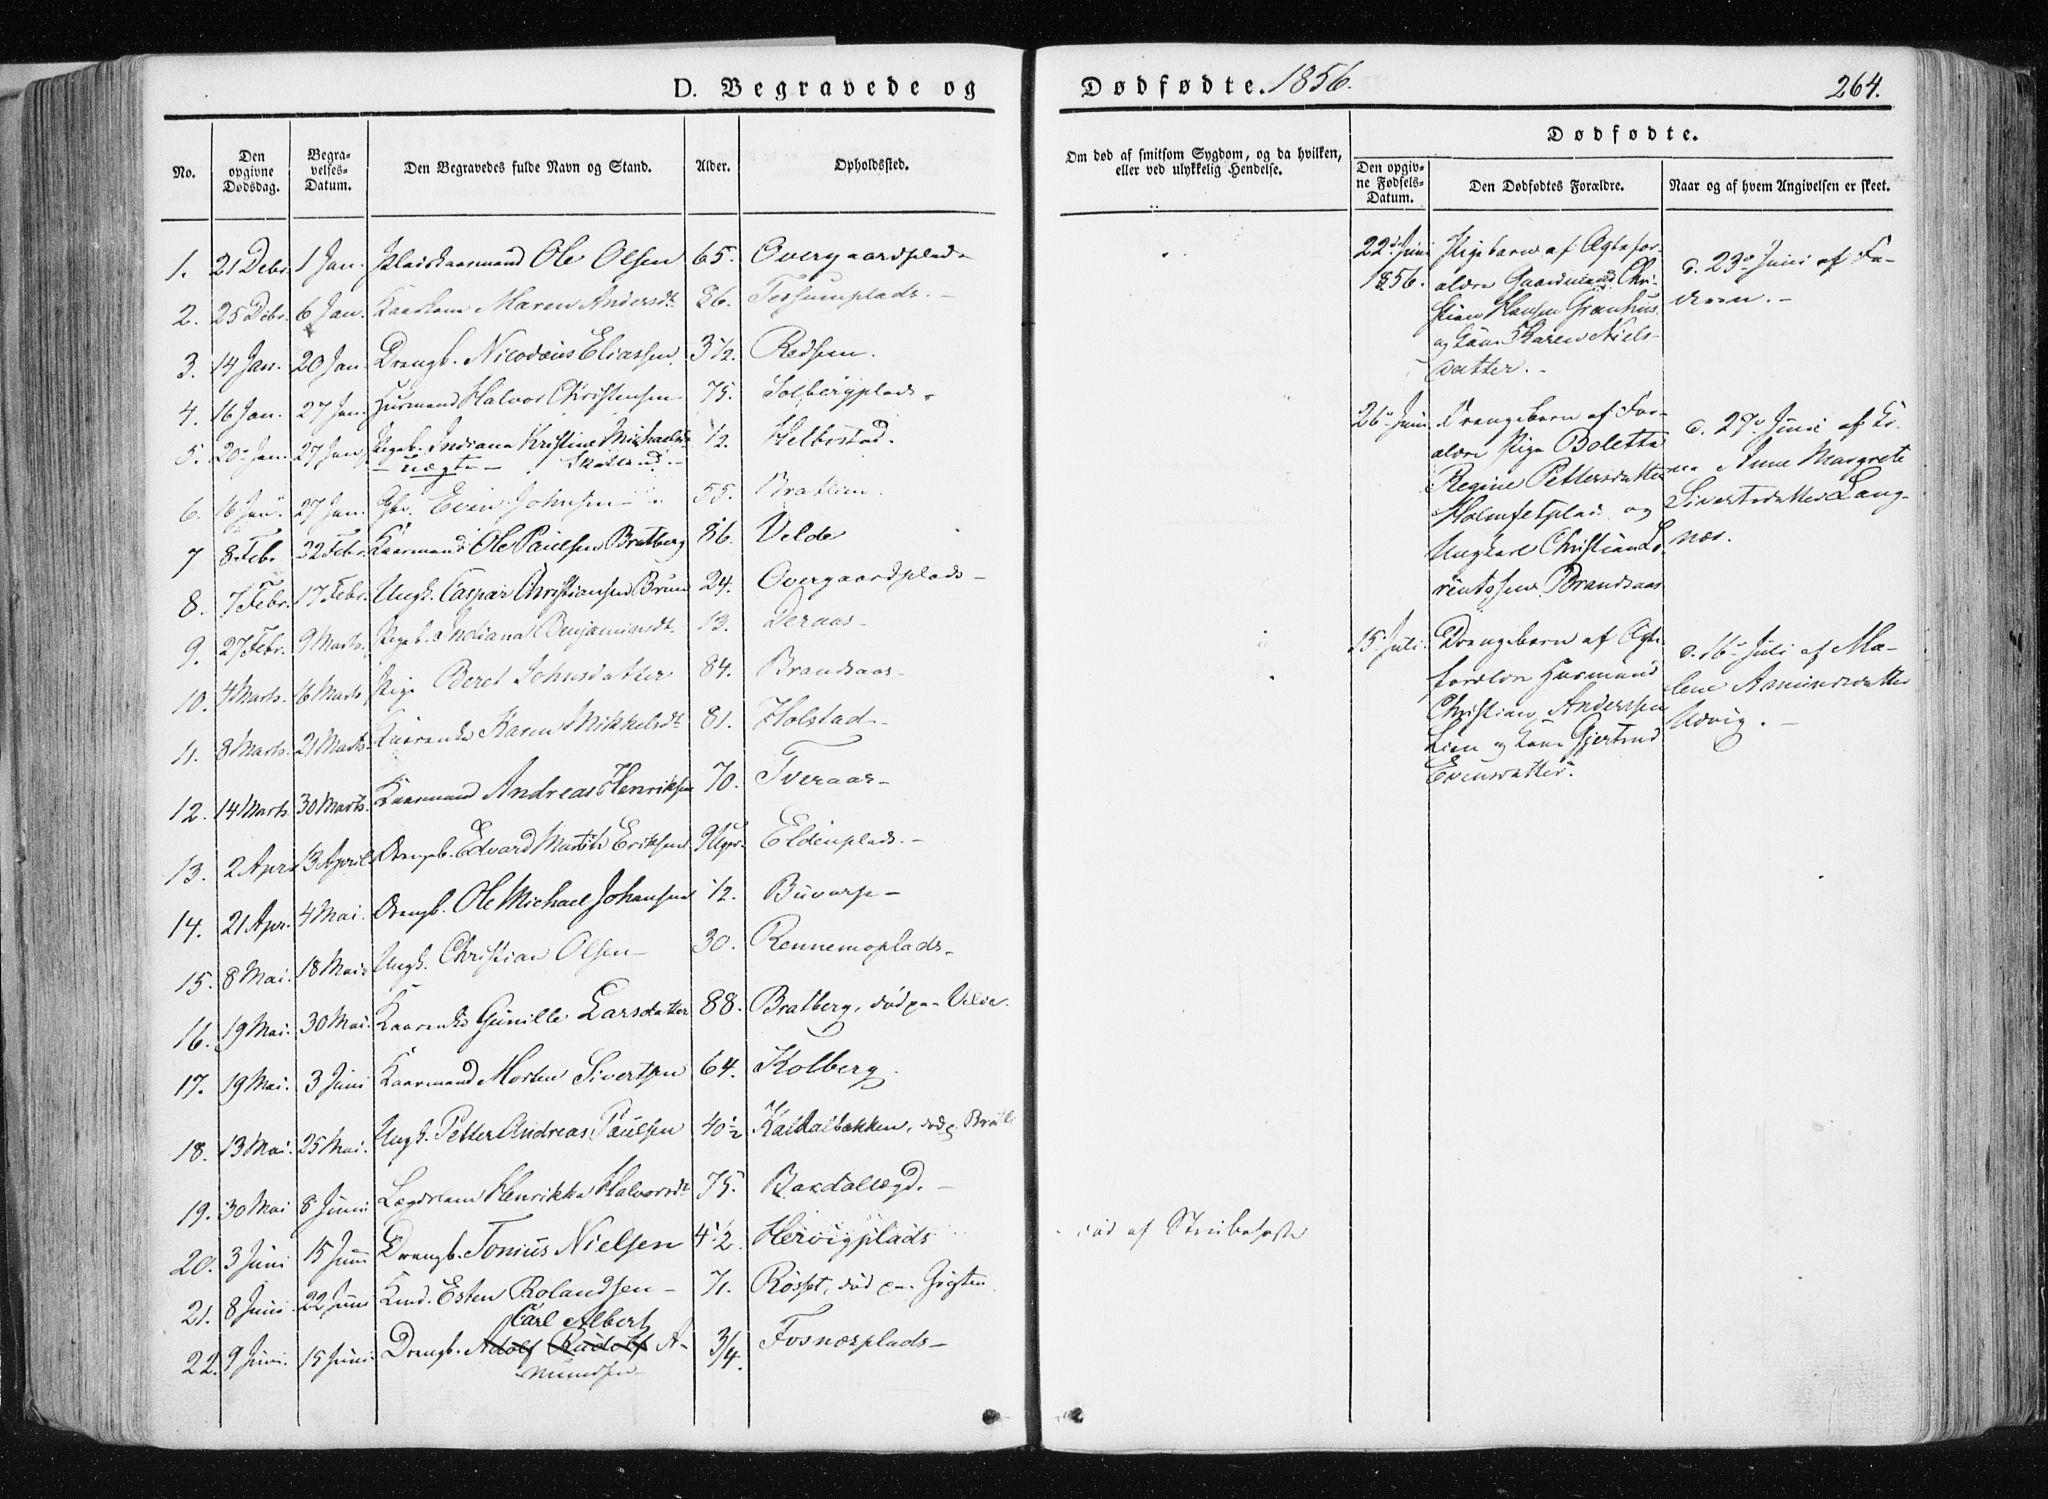 D. Begravede og Dødfødte. 1856. 264.
No.
Den opgivne Dødsdag.
Begravelses-Datum.
Den Begravedes fulde Navn og Stand.
Alder.
Opholdssted.
Om død af smitsom Sygdom, og da hvilken, eller ved ulykkelig Hendelse.
Dødfødte.
Den opgivne Fødsels-Datum.
Den Dødfødtes Forældre.
Naar og af hvem Angivelsen er skeet.
1. 21 Debr. 1 Jan. Ole Olsen 65. Overgaardplads
2. 25 Debr. 6 Jan. Maren Andersdt. 86. Tessumplads.-
3. 14 Jan. 20 Jan. Drengb. Nicodæus Eliassen 3½. Rødsen.
4. 16 Jan. 27 Jan. Huusmand Halvor Christensen 75. Solbergplads.
5. 20 Jan. 27 Jan. Pigeb. Indiana Kristine Michaelsdt. ½. Helbostad.
- uægte - Skatland.-
6. 16 Jan. 27 Jan. Gbr. Even Johnsen - 55. Bratlien.
7 8 Febr. 22 Febr. Kaarmand Ole Paulsen Bratberg 86. Velde
8. 7 Febr. 17 Febr. Ungk. Caspar Christiansen Bruun 24. Overgaardplads-
9. 27 Febr. 9 Marts. Pigeb. Indiana Benjaminsdt. 13. Deraas-
10. 4 Marts. 16 Marts Pige Beret Johnsdatter 84. Brandsaas-
11. 8 Marts. 21 Marts. Kaarenke Karen Mikkelsdt. 81. Holstad-
12. 14 Marts. 30 Marts. Kaarmand Andreas Henriksen 70. Tveraas-
13. 2 Apr. 13 April Drengb. Edvard Martin Eriksen 9 Uger. Eldenplads.-
14. 21 Apr. 4 Mai. Drengb. Ole Michael Johansen ½. Buvarp-
15. 8 Mai. 18 Mai. Ungk. Christian Olsen- 30. Rennemoplads-
16. 19 Mai. 30 Mai. Kaarenke Gunille Larsdatter 88. Bratberg, død paa Velde.
17. 19 Mai. 3 Juni Kaarmand Morten Sivertsen 64. Kolberg.
18. 13 Mai. 25 Mai. Ungk. Petter Andreas Paulsen 40½ Kaldalbakken, død p. Bratli
19. 30 Mai 8 Juni Lægdslem Henrikka Halvorsdt. 75. Bardallægd.-
20. 3 Juni 15 Juni Drengb. Tonius Nielsen 4½. Hervigplads død af Strubehoste
21. 8 Juni 22 Juni Esten Rolandsen- 71. Rosset, død paa Gigten.
Carl Albert
22. 9 Juni. 15 Juni. Drengb. Adolf Rudolf A- 3/4. Fosnæsplads-
mundsen
22de Juni 1856. Pigebarn af Ægtefor-
ældre Gaardmand Chri-
stian Hansen Grønhus.
og Kone Karen Niels-
datter.-
d. 23de Juni af Fa-
deren.-
26de Juni Drengebarn af For-
ældre Pige Boletta
Regine Pettersdatter
Holmsetplads og
Ungkarl Christian Lo-
rentssen Brandsaas
d. 27de Juni af Ko-
ne Anne Margrete
Sivertsdatter Lang-
næs.
15. Juli. Drengebarn af Ægte-
forældre Huusmand
Christian Anderssen
Lien og Kone Gjertrud
Evensdatter.
d. 16de Juli af Ma-
lene Asmundsdatter
Udvig.-